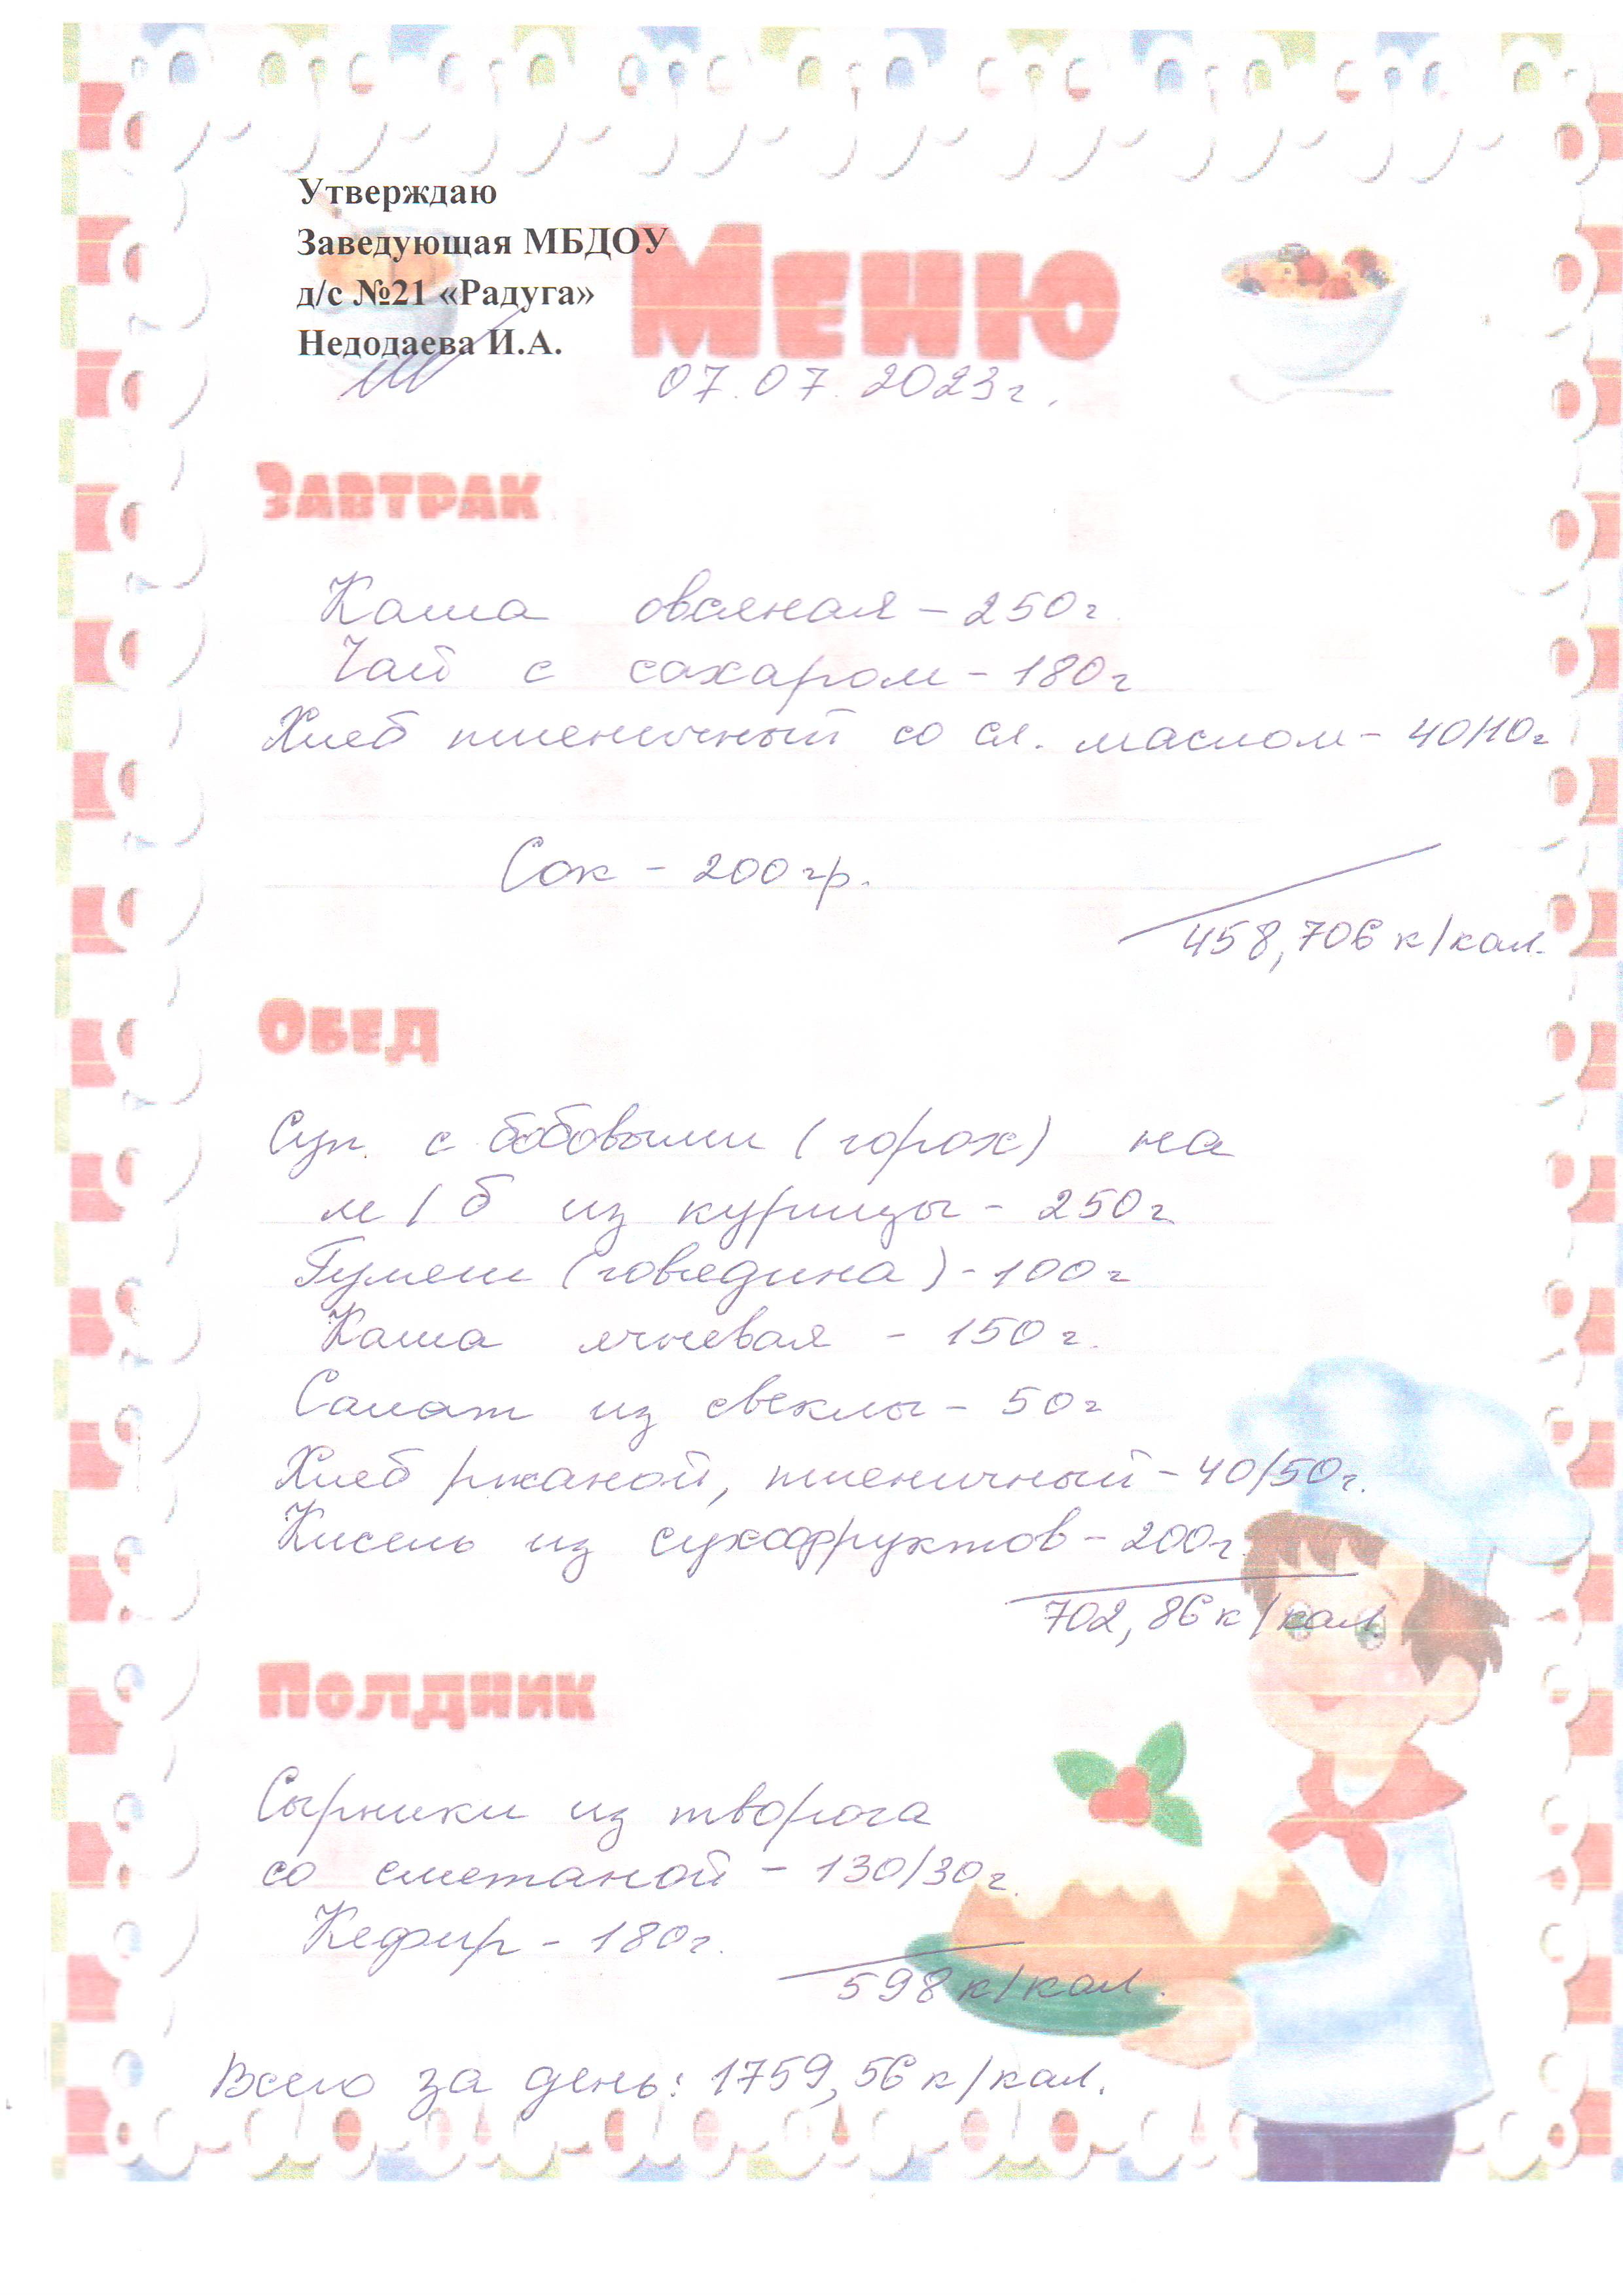 Утверждаю
Заведующая МБДОУ
д/с №21 «Радуга»
Недодаева И.А.
Меню
07.07.2023г.
Завтрак
Каша овсяная - 250г
Чай с сахаром - 180г
Хлеб пшеничный со сл. маслом - 40/10г
Сок - 200гр.
458,706 к/кал.
Обед
Суп с бобовыми (горох) на
м/б из курицы - 250г
Гуляш (говядина) - 100г
Каша ячневая - 150г.
Салат из свеклы - 50г
Хлеб ржаной, пшеничный - 40/50г.
Кисель из сухофруктов - 200г.
702,86 к/кал.
Полдник
Сырники из творога
со сметаной - 130/30г.
Кефир - 180г.
598 к/кал.
Всего за день: 1759,56 к/кал.